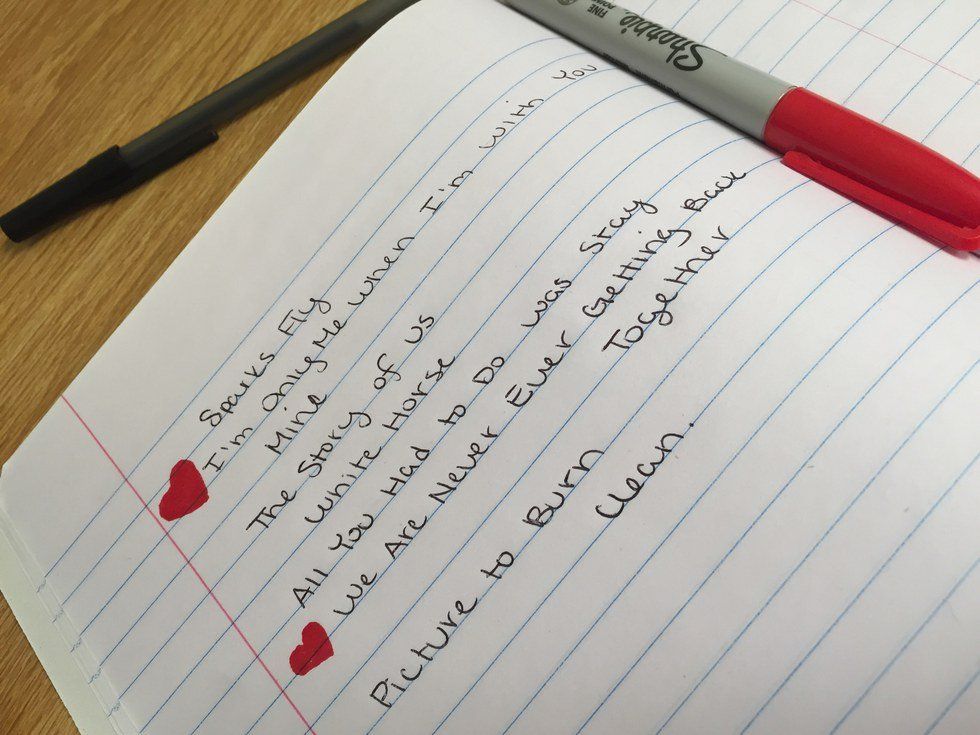 Sharpie
FINE
Sparks Fly
I'm Only Me When I'm With You
Mine
The Story of Us
White Horse
All You Had to Do was Stay
We Are Never Ever Getting Back
Together
Picture to Burn
Clean.